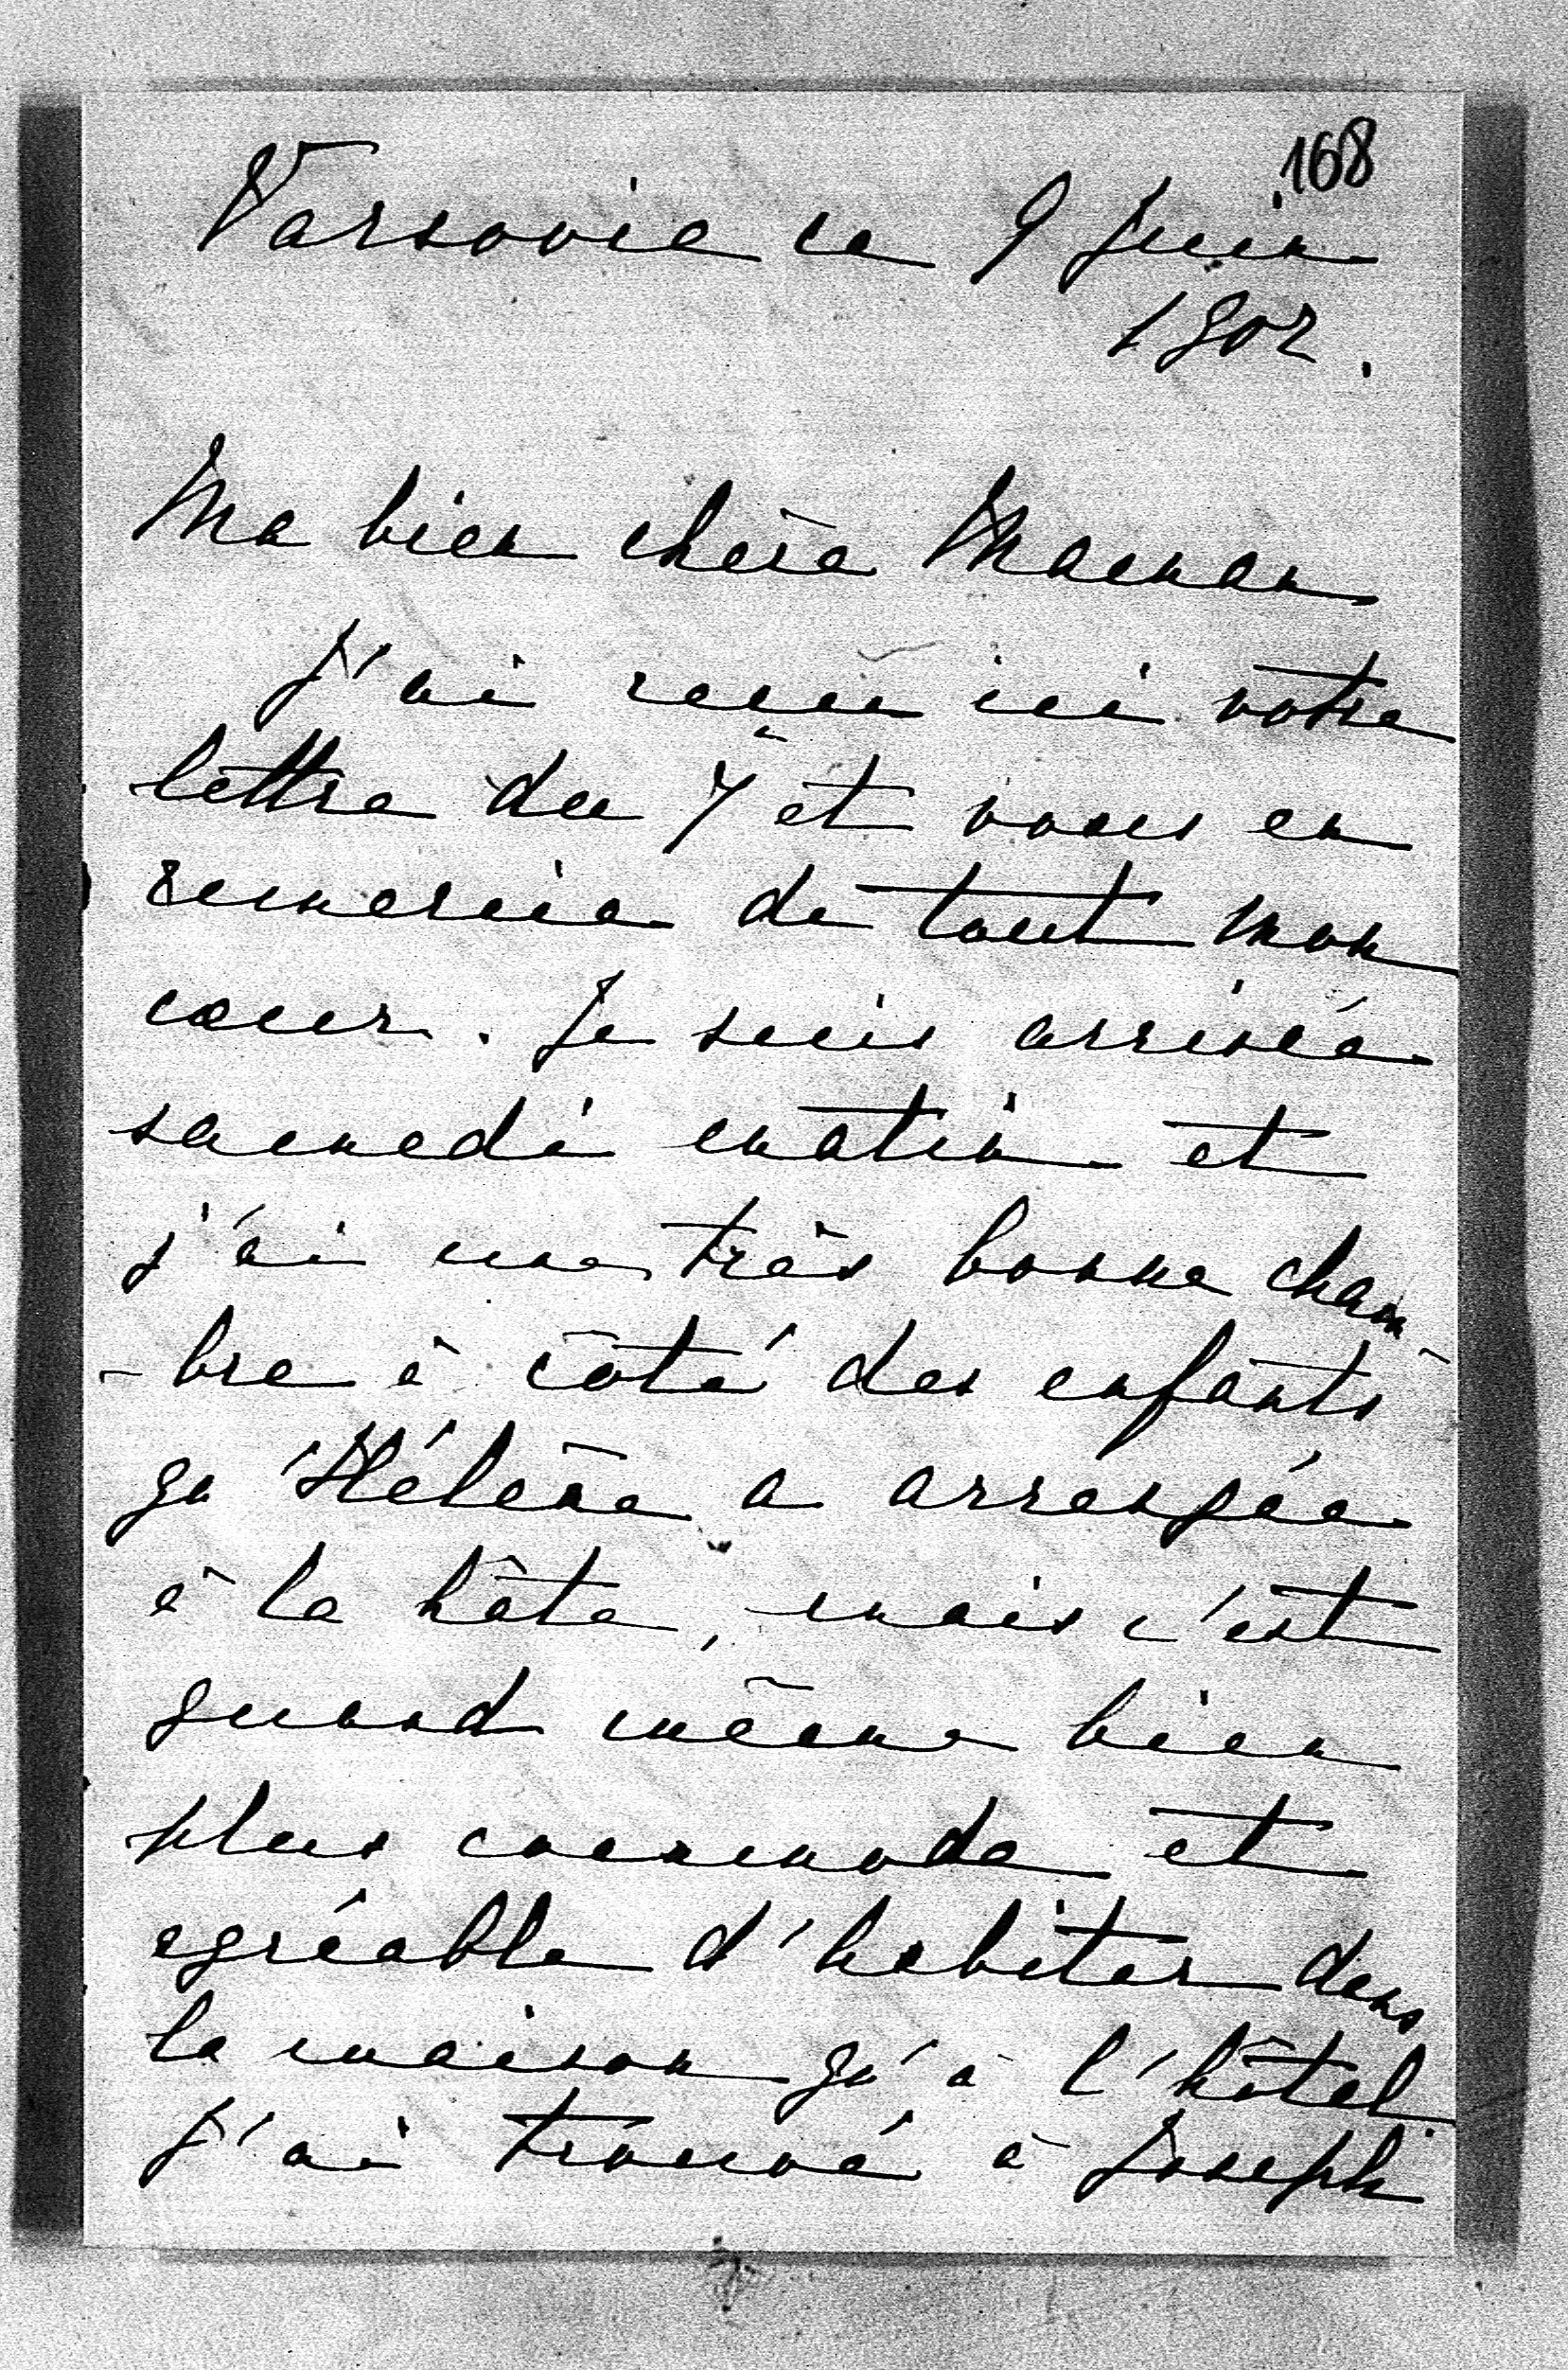 168
Varsovie ce 9 Juin
1902.
Ma bien chère Maman
J'ai reçu ici votre
lettre du 7 et vous en
remercie de tout mon
coeur. Je suis arrivée
samedi matin et
j'ai une très bonne cham
-bre à côté des enfants
qu'Hélène a arrangée
à la hâte, mais c'est
quand même bien
plus commode et
agréable d'habiter dans
la maison qu'à l'hôtel
J'ai trouvé à Joseph